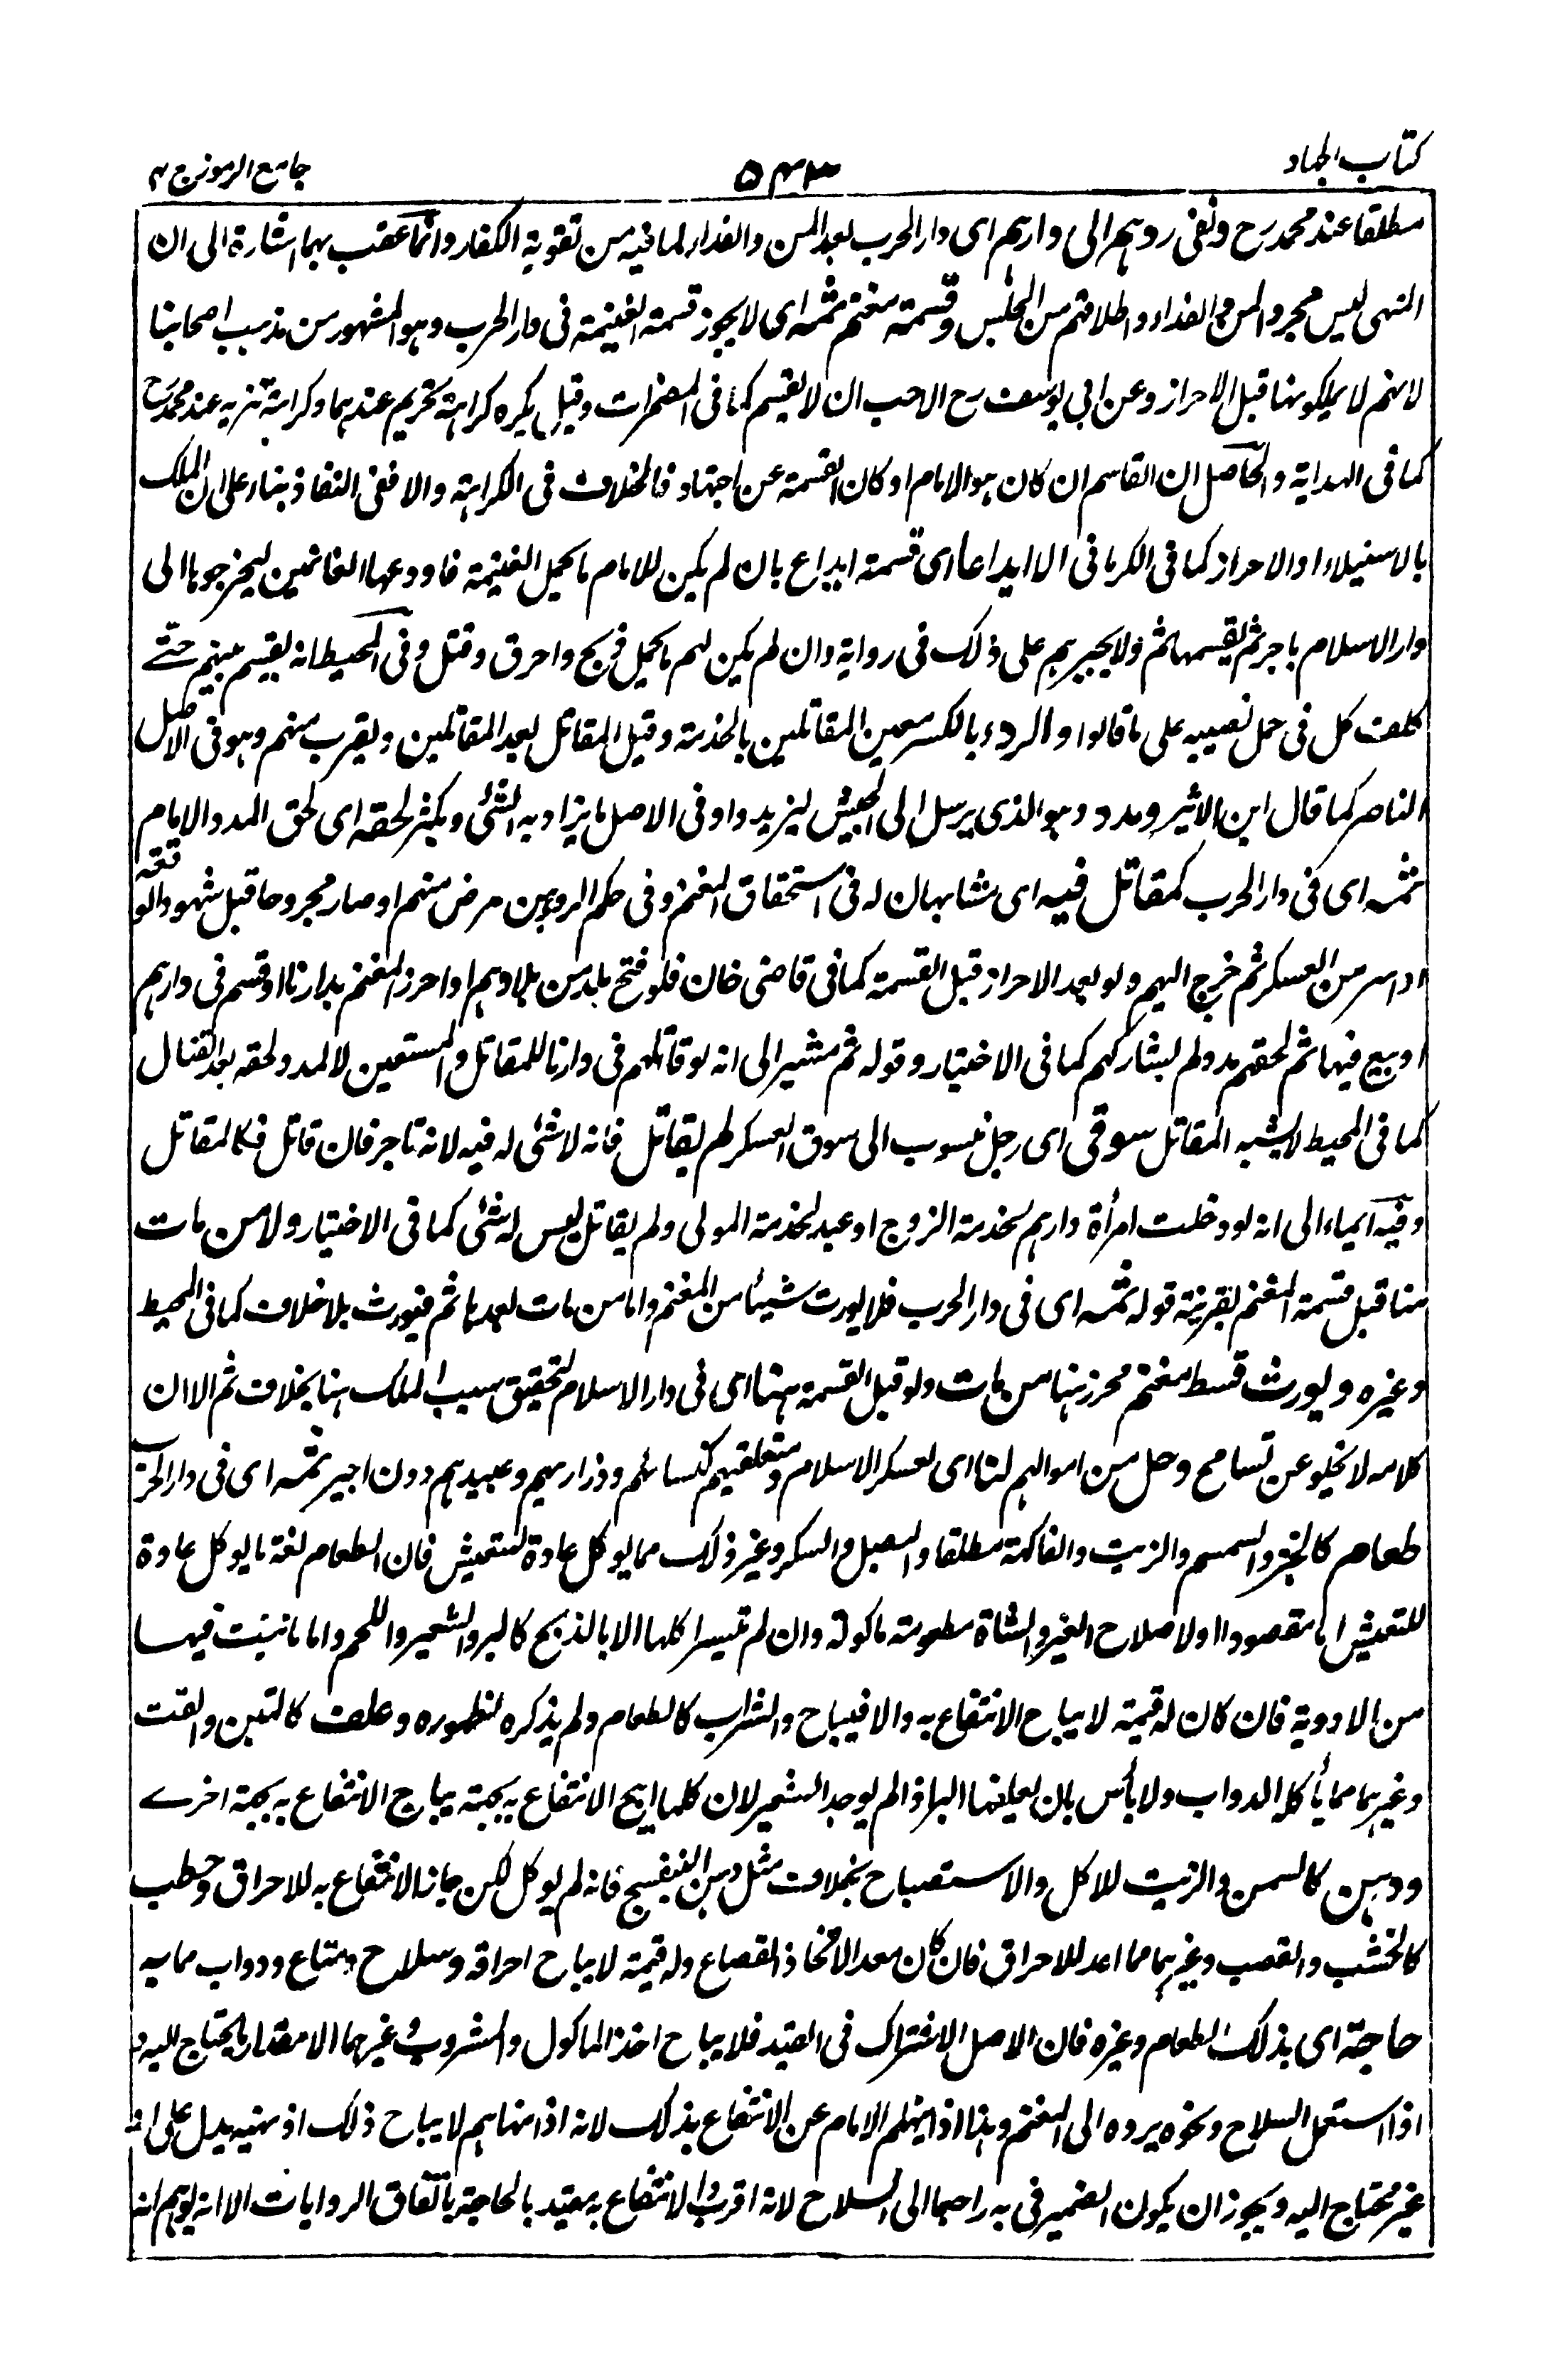 كتاب الجهاد
۵۴۳
جامع الرموز ج ۴
مطلقا عند محمد رح ونفى ردهم الى دارهم اى دار الحرب بعد المن والفداء لما فيه من تقوية الكفار وانما عقب بهما اشارة الى ان
المنهى ليس مجرد المن والفداء واطلاقهم من الحبس وقسمة مغنم ثمه اى لا يجوز قسمة الغنيمة فى دار الحرب وهو المشهور من مذهب اصحابنا
لانهم لا يملكونها قبل الاحراز وعن ابى يوسف رح الاحب ان لا يقسم كما فى المضمرات وقيل يكره كراهة تحريم عندهما وكراهة تنزيه عند محمد رح
كما فى الهداية والحاصل ان القاسم ان كان هو الامام او كان القسمة عن اجتهاد فالخلاف فى الكراهة والا ففى النفاذ بناء على ان الملك
بالاستيلاء او الاحراز كما فى الكرمانى الا ايداعا اى قسمة ايداع بان لم يكن للامام ما يحمل الغنيمة فاودعها الغانمين ليخرجوها الى
دار الاسلام باجر ثم يقسمها ثم ولا يجبرهم على ذلك فى رواية وان لم يكن لهم ما يحمل ذبح واحرق وقتل وفى المحيط انه يقسم بينهم حتى
كلف كل فى حمل نصيبه على ما قالوا والردء بالكسر معين المقاتلين بالخدمة وقيل المقاتل بعد المقاتلين وبقرب منهم وهو فى الاصل
الناصر كما قال ابن الاثير ومدد وهو الذى يرسل الى الجيش ليزيدوا وفى الاصل ما يزاد به الشئ ويكثر لحقه اى لحق المدد الامام
ثمه اى فى دار الحرب كمقاتل فيه اى مشابهان له فى استحقاق المغنم وفى حكم الردء من مرض منهم او صار مجروحا قبل شهود الوقعة
او اسر من العسكر ثم خرج اليهم ولو بعد الاحراز قبل القسمة كما فى قاضى خان فلو فتح بلد من بلادهم او احرز المغنم بدارنا او قسم فى دارهم
او بيع فيها ثم لحقهم مدد لم يشاركهم كما فى الاختيار وقوله ثم مشير الى انه لو قاتلهم فى دارنا للمقاتل والمستعين لا لمدد لحقه بعد القتال
كما فى المحيط لا يشبه المقاتل سوقى اى رجل منسوب الى سوق العسكر لم يقاتل فانه لا شئ له فيه لانه تاجر فان قاتل فكالمقاتل
وفيه ايماء الى انه لو دخلت امرأة دارهم لخدمة الزوج او عبد لخدمة المولى ولم يقاتل ليس له شئ كما فى الاختيار ولا من مات
منا قبل قسمة المغنم بقرينة قوله ثمه اى فى دار الحرب فلا يورث شيئا من المغنم واما من مات بعدها ثم فيورث بلا خلاف كما فى المحيط
وغيره ويورث قسط مغنم محرز هنا من مات ولو قبل القسمة هنا اى فى دار الاسلام لتحقيق سبب الملك هنا بخلاف ثم الا ان
كلامه لا يخلو عن تسامح وحل من اموالهم لنا اى لعسكر الاسلام ومتعلقيهم كنسائهم وذراريهم وعبيدهم دون اجير ثمه اى فى دار الحرب
طعام كالخبز والسمسم والزيت والفاكهة مطلقا والبصل والسكر وغير ذلك مما يوكل عادة للتعيش فان الطعام لغة ما يوكل عادة
للتعيش اما مقصودا او لاصلاح الغير والشاة مطعومة ماكولة وان لم تيسر اكلها الا بالذبح كالبر والشعير واللحم واما ما نبت فيها
من الادوية فان كان له قيمة لا يباح الانتفاع به والا فيباح والشراب كالطعام ولم يذكره لظهوره وعلف كالتبن والقت
وغيرهما مما يأكل الدواب ولا بأس بان يعلفها البر اذا لم يوجد الشعير لان كلما ابيح الانتفاع به بجهة يباح الانتفاع به بجهة اخرى
ودهن كالسمن والزيت للاكل والاستصباح بخلاف مثل دهن البنفسج فانه لم يوكل لكن جاز الانتفاع به للاحراق وحطب
كالخشب والقصب وغيرهما مما اعد للاحراق فان كان معد الاتخاذ القصاع وله قيمة لا يباح احراقه وسلاح ومتاع ودواب مما به
حاجة اى بذلك الطعام وغيره فان الاصل الاشتراك فى القيد فلا يباح اخذ الماكول والمشروب وغيرهما الا مقدار ما يحتاج اليه و
اذا استعمل السلاح ونحوه يرده الى المغنم وهذا اذا لم ينههم الامام عن الانتفاع بذلك لانه اذا نهاهم لا يباح ذلك اذ نهيه يدل على انه
غير محتاج اليه ويجوز ان يكون الضمير فى به راجعا الى السلاح لانه اقرب والانتفاع به مقيد بالحاجة باتفاق الروايات الا انه يوهم انه